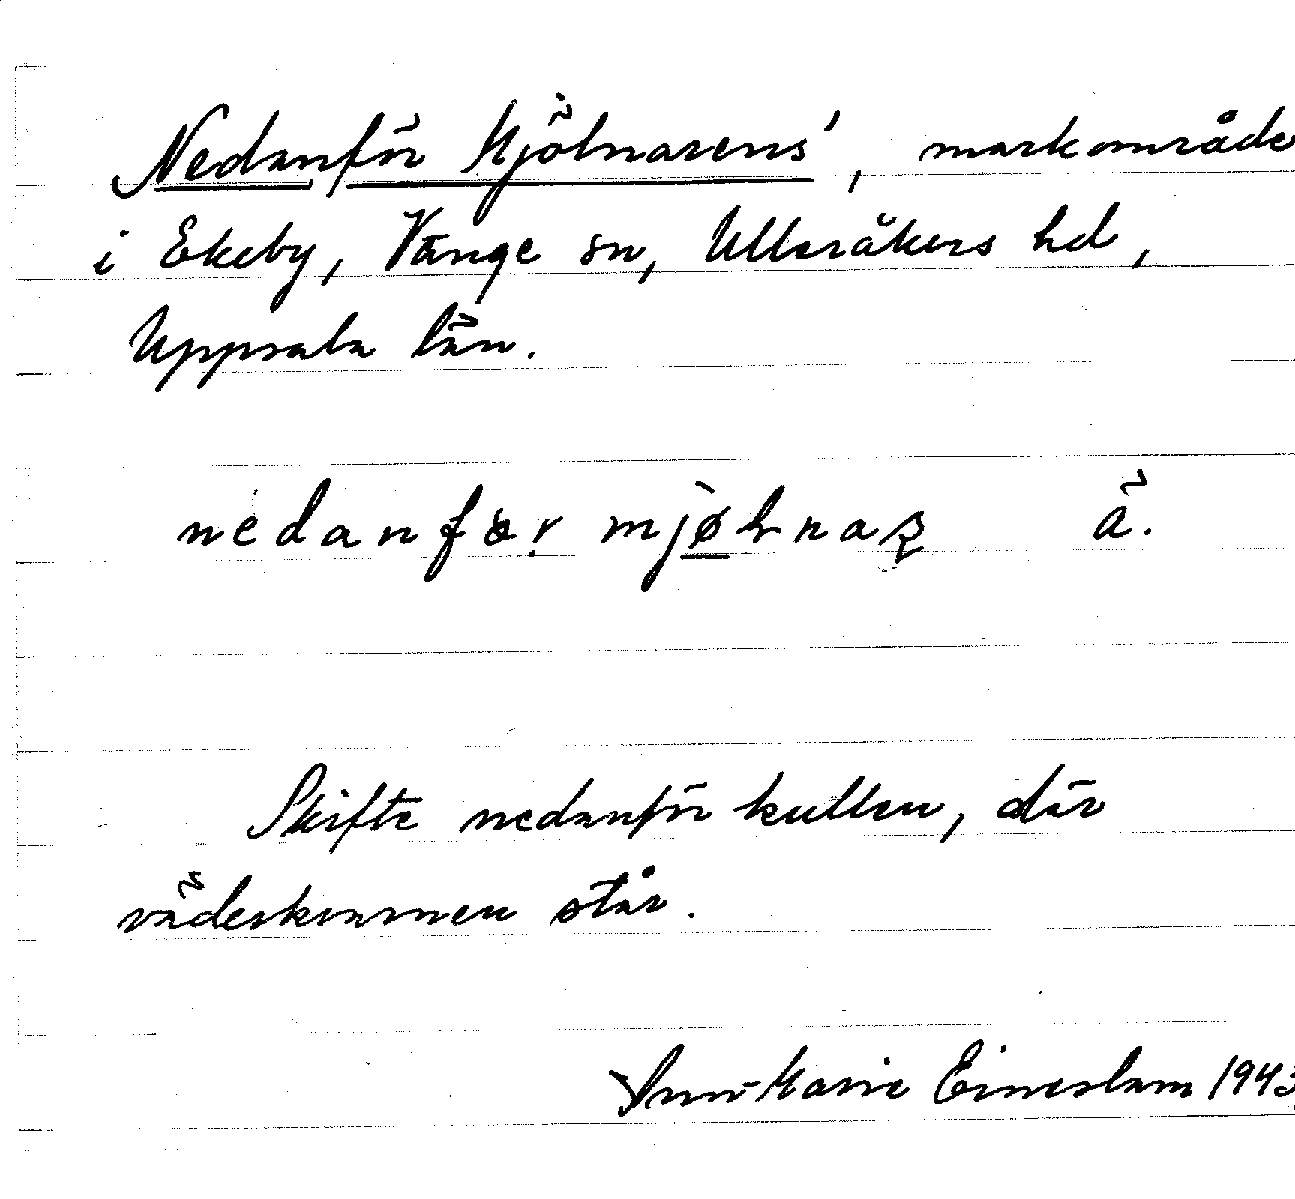 Nedanför Mjölnarens', markområde
i Ekeby, Vänge sn, Ulleråkers hd,
Uppsala län.
nedanfər mjø̀lnaʂ ä.
Skifte nedanför kullen, där
väderkvarnen står.
Ann-Marie Eineslam 1943